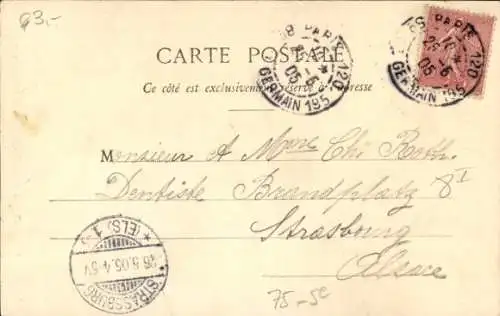 63.-
PARIS 120
GERMAIN 195
PARIS 120
GERMAIN 195
CARTE POSTALE
Ce côté est exclusivement réservé à l'adresse
Monsieur A Mme Chs Roth
Dentiste Brandplatz 8 I
Strasbourg
Alsace
STRASSBURG * (ELS.) 1 *
26.6.05.4-5V
75-5e